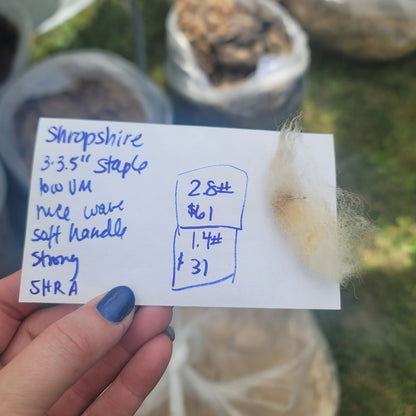 Shropshire
3-3.5" Staple
low VM
nice wave
soft handle
Strong
SHRA
2.8#
$61
1.4#
$31